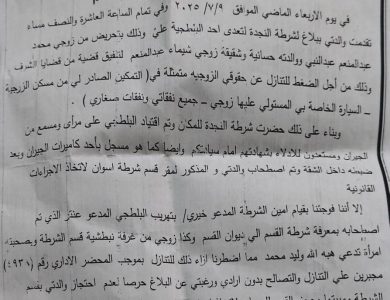 في يوم الأربعاء الماضي الموافق ٢٠٢٥/٧/٩ وفي تمام الساعة العاشرة والنصف مساء
تقدمت والدتي ببلاغ لشرطة النجدة لتعدى احد البلطجية علي وذلك بتحريض من زوجي محمد
عبدالمنعم عبدالنبي ووالدته حسانية وشقيقة زوجي شيماء عبدالمنعم لتلفيق قضية من قضايا الشرف
وذلك من أجل الضغط للتنازل عن حقوقي الزوجيه متمثلة في (التمكين الصادر لي من مسكن الزوجية
– السيارة الخاصة بي المستولي عليها زوجي – جميع نفقاتي ونفقات صغاري)
وبناء على ذلك حضرت شرطة النجدة للمكان وتم اقتياد البلطجي على مرأى ومسمع من
الجيران ومستعدون للادلاء بشهادتهم امام سيادتكم وايضا كما هو مسجل بأحد كاميرات الجيران وبعد
ضبطه داخل الشقة وتم اصطحاب والدتي و المذكور لمقر قسم شرطة اسوان لاتخاذ الاجراءات
القانونية
إلا أننا فوجئنا بقيام امين الشرطة المدعو خيري/ بتهريب البلطجي المدعو عنتر الذي تم
اصطحابه بمعرفة شرطة القسم الي ديوان القسم وكذا زوجي من غرفة نبطشية قسم الشرطة وبصحبته
امرأة تدعي هبه الله وليد محمد مما اضطرنا ازاء ذلك للتنازل بموجب المحضر الاداري رقم (٤٩٣١)
مجبرين على التنازل والتصالح بدون ارادة ورغبتي عن البلاغ حرصا لعدم احتجاز والدتي بقسم
الشرطة